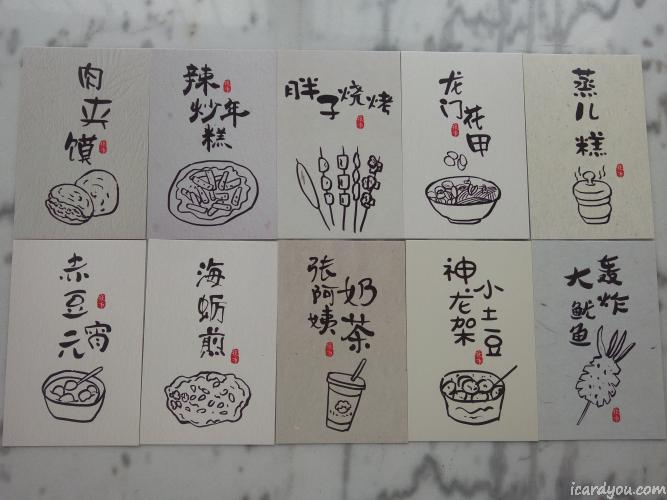 肉夹馍
辣炒年糕
胖子烧烤
龙门花甲
蒸儿糕
赤豆元宵
海蛎煎
张阿姨奶茶
神龙架小土豆
轰炸大鱿鱼
icardyou.com